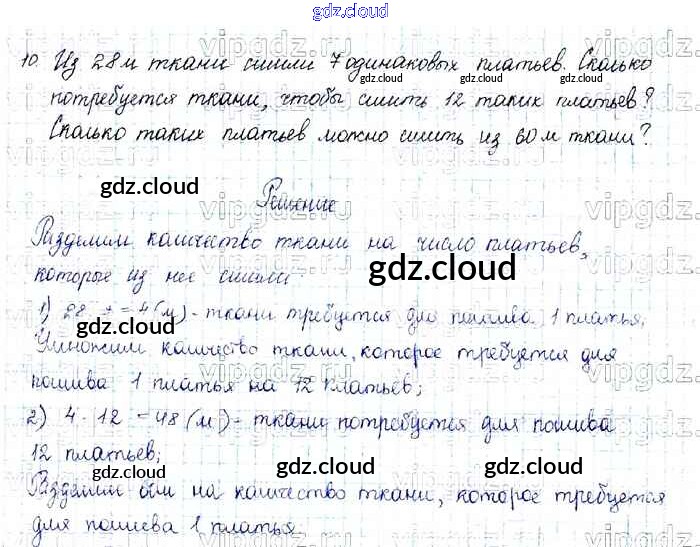 gdz.cloud
10. Из 28 м ткани сшили 7 одинаковых платьев. Сколько
gdz.cloud gdz.cloud
потребуется ткани, чтобы сшить 12 таких платьев?
Сколько таких платьев можно сшить из 60 м ткани?
gdz.cloud
Решение
Разделим количество ткани на число платьев,
которые из нее сшили.
gdz.cloud
1) 28 : 7 = 4 (м) - ткани требуется для пошива 1 платья;
gdz.cloud gdz.cloud
Умножим количество ткани, которое требуется для
пошива 1 платья на 12 платьев;
gdz.cloud
2) 4 · 12 = 48 (м) - ткани потребуется для пошива
12 платьев;
gdz.cloud gdz.cloud
Разделим 60 м на количество ткани, которое требуется
для пошива 1 платья.
gdz.cloud gdz.cloud